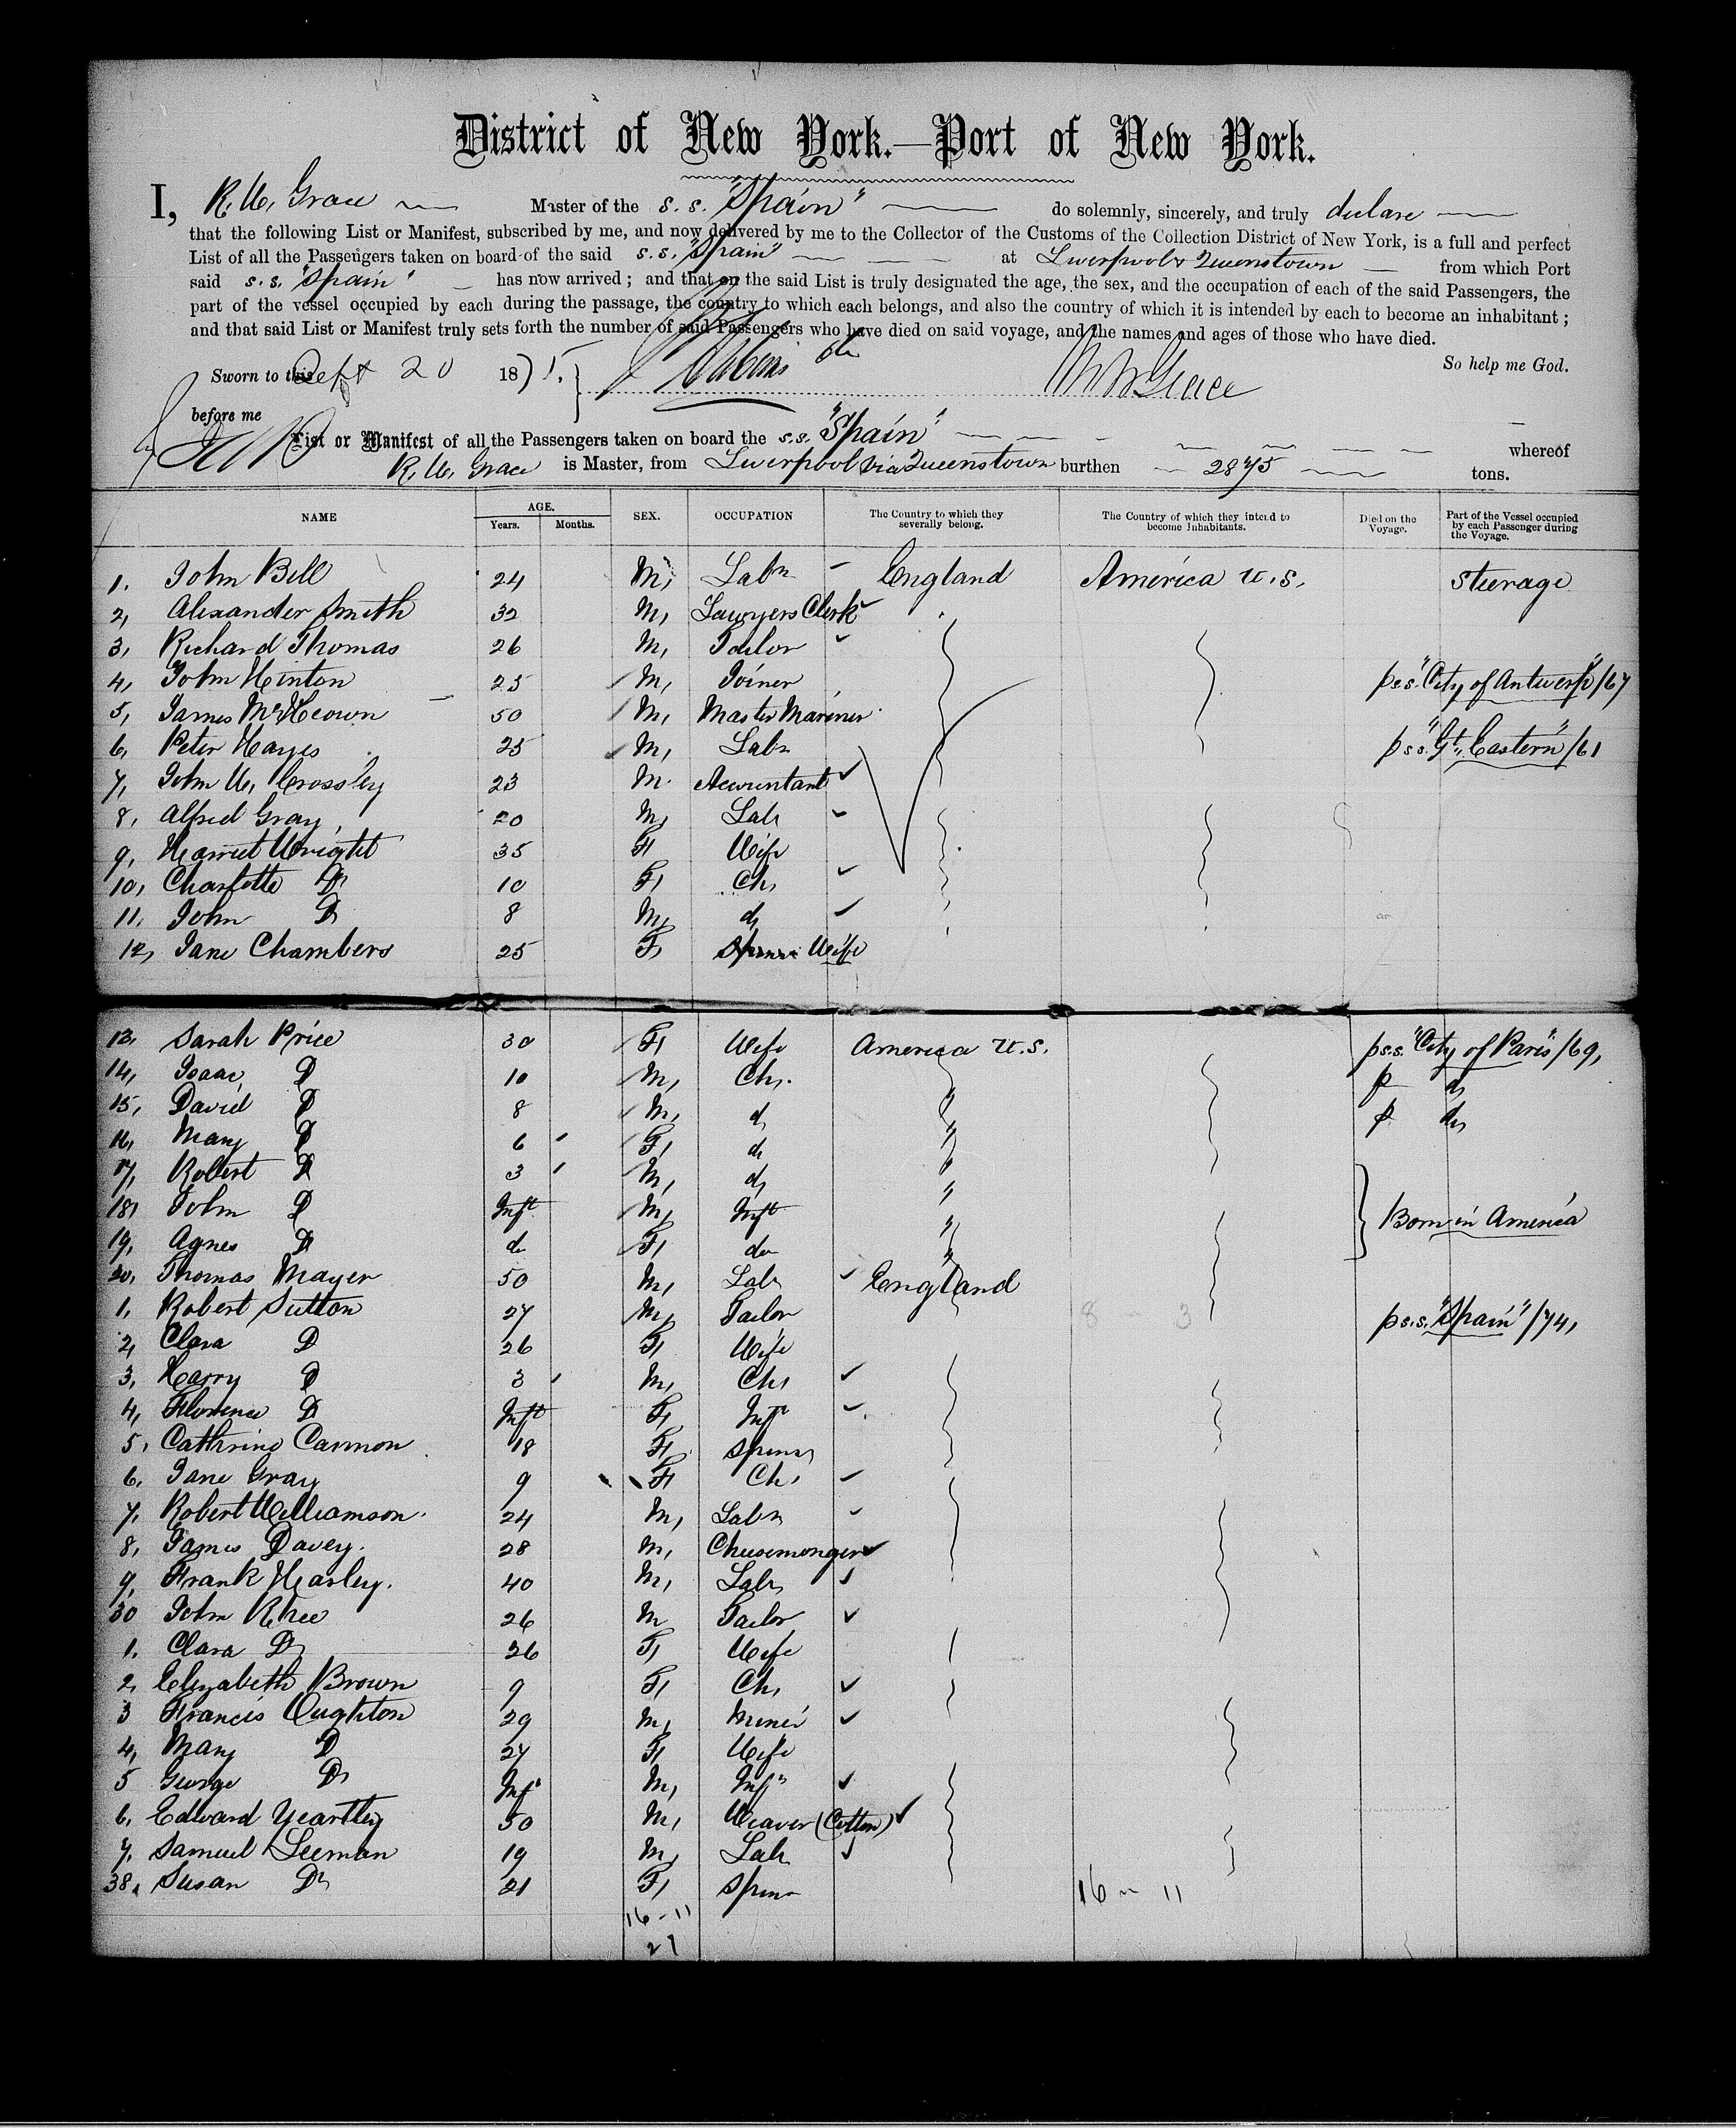 District of New York.—Port of New York.
I, R. W. Grace Master of the s.s. "Spain" do solemnly, sincerely, and truly declare
that the following List or Manifest, subscribed by me, and now delivered by me to the Collector of the Customs of the Collection District of New York, is a full and perfect
List of all the Passengers taken on board of the said s.s. "Spain" at Liverpool & Queenstown from which Port
said s.s. "Spain" has now arrived; and that on the said List is truly designated the age, the sex, and the occupation of each of the said Passengers, the
part of the vessel occupied by each during the passage, the country to which each belongs, and also the country of which it is intended by each to become an inhabitant;
and that said List or Manifest truly sets forth the number of said Passengers who have died on said voyage, and the names and ages of those who have died.
So help me God.
Sworn to this Sept 20 1875. R W Grace
before me
List or Manifest of all the Passengers taken on board the s.s. "Spain" whereof
R. W. Grace is Master, from Liverpool via Queenstown burthen 2875 tons.
NAME AGE. Years. Months. SEX. OCCUPATION The Country to which they severally belong. The Country of which they intend to become Inhabitants. Died on the Voyage. Part of the Vessel occupied by each Passenger during the Voyage.
1. John Bell 24 M, Labr England America U.S. Steerage
2, Alexander Smith 32 M, Lawyers Clerk
3, Richard Thomas 26 M, Tailor
4, John Hinton 25 M, Joiner p s.s. "City of Antwerp"/67
5, James McKeown 50 M, Master Mariner
6, Peter Hayes 25 M, Labr p s.s. "Gt. Eastern"/61
7, John W, Crossley 23 M. Accountant
8, Alfred Gray, 20 M, Labr
9, Harriet Wright 35 F, Wife
10, Charlotte Do 10 F, Ch,
11, John Do 8 M, do
12, Jane Chambers 25 F, Wife
13, Sarah Price 30 F, Wife America U.S. p s.s. "City of Paris"/69,
14, Isaac, D 10 M, Ch,. p do
15, David D 8 M, do " p do
16, Mary D 6 F, do "
17, Robert D 3 M, do "
18, John D Inft M, Inft " Born in America
19, Agnes D do F, do "
20, Thomas Mayer 50 M, Labr England
1, Robert Sutton 27 M, Tailor 8 - 3 p s.s. "Spain"/74,
2, Clara D 26 F, Wife
3, Harry D 3 M, Ch,
4, Florence D Inft F, Inft
5, Cathrine Cannon 18 F, Spinr
6, Jane Gray 9 F, Ch,
7, Robert Williamson. 24 M, Labr
8, James Davey. 28 M, Cheesemonger
9, Frank Harley. 40 M, Labr
30 John Rhee 26 M Tailor
1. Clara Do 26 F, Wife
2, Elizabeth Brown 9 F, Ch,
3 Francis Oughton 29 M, Miner
4, Mary D 27 F, Wife
5 George Do Inft M, Inft
6, Edward Yeartley 50 M, Weaver (Cotton)
7, Samuel Leeman 19 M, Labr
38, Susan Do 21 F, Spinr 16 - 11
16 - 11
27